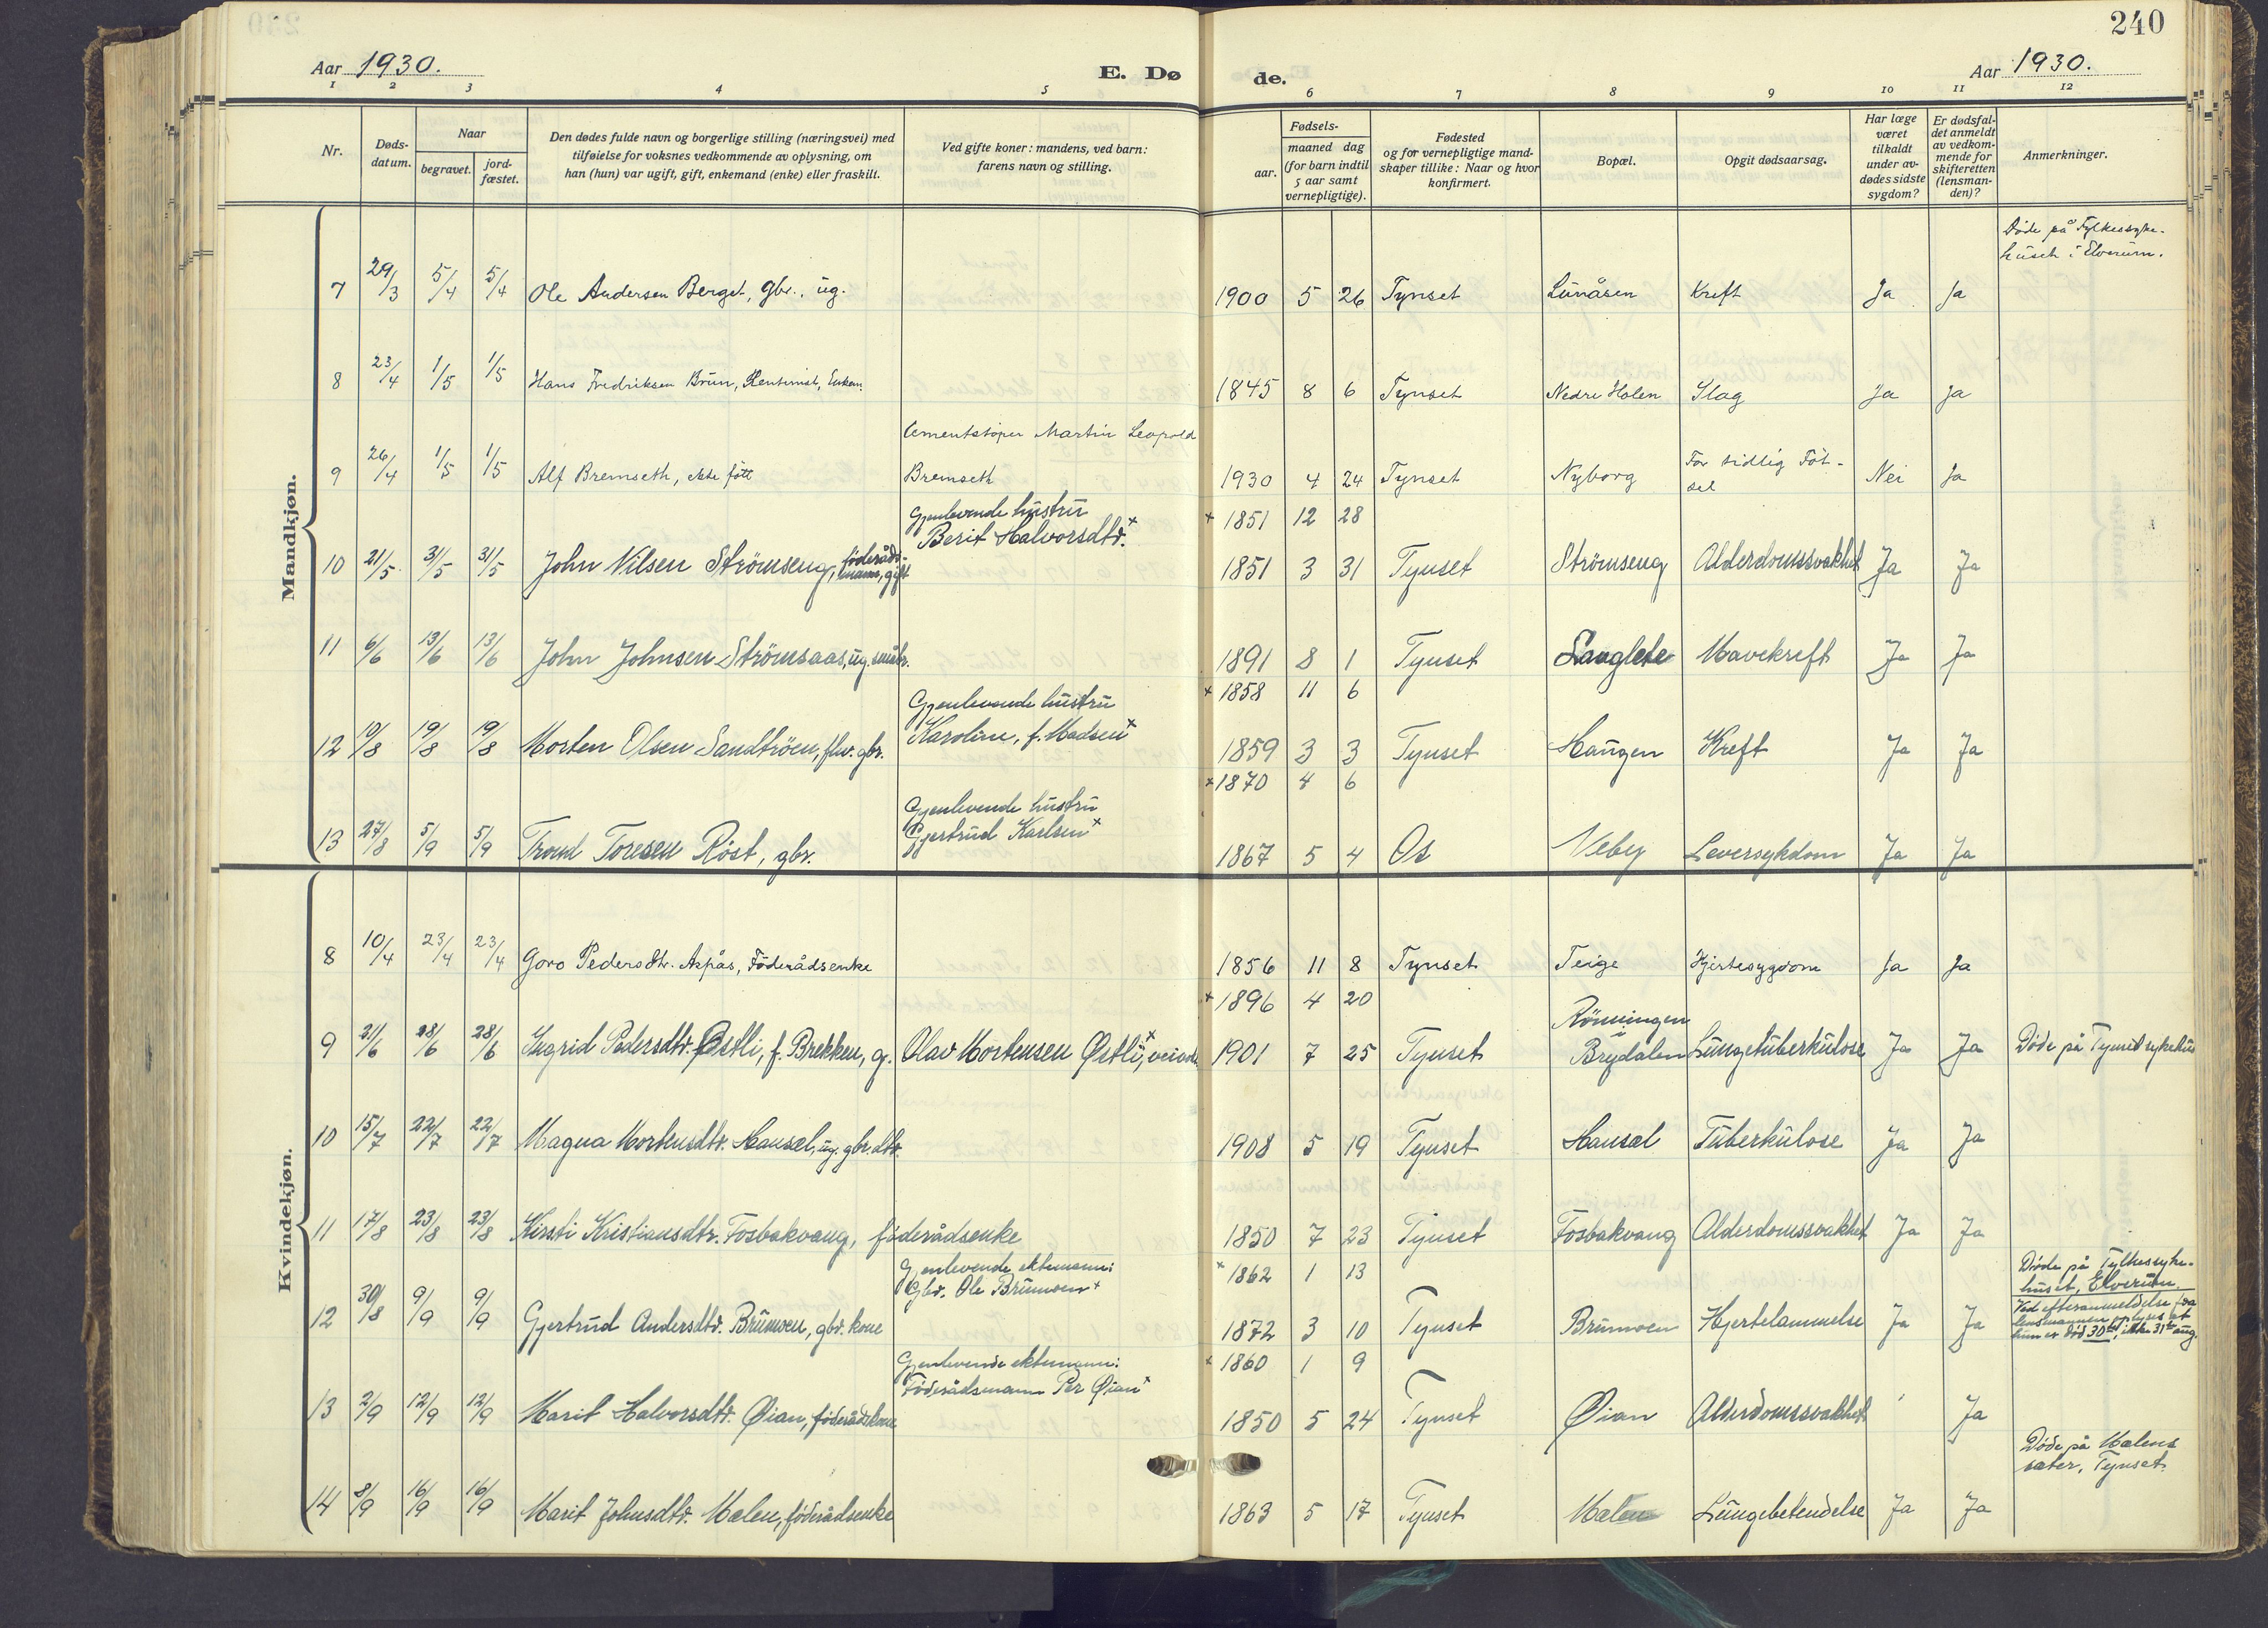 240
Aar 1930.
E. Dø de.
Aar 1930.
1 2 3 4 5 6 7 8 9 10 11 12
Nr.
Døds-
datum.
Naar
begravet.
jord-
fæstet.
Den dødes fulde navn og borgerlige stilling (næringsvei) med
tilføielse for voksnes vedkommende av oplysning, om
han (hun) var ugift, gift, enkemand (enke) eller fraskilt.
Ved gifte koner: mandens, ved barn:
farens navn og stilling.
Fødsels-
aar.
maaned dag
(for barn indtil
5 aar samt
vernepligtige).
Fødested
og for vernepligtige mand-
skaper tillike: Naar og hvor
konfirmert.
Bopæl.
Opgit dødsaarsag.
Har læge
været
tilkaldt
under av-
dødes sidste
sygdom?
Er dødsfal-
det anmeldt
av vedkom-
mende for
skifteretten
(lensman-
den)?
Anmerkninger.
Mandkjøn.
Døde på Fylkessyke-
huset i Elverum.
7 29/3 5/4 5/4 Ole Andersen Berget, gbr., ug. 1900 5 26 Tynset Lunåsen Kreft Ja Ja
8 23/4 1/5 1/5 Hans Fredriksen Brun, Rentenist, Enkem. 1845 8 6 Tynset Nedre Holen Slag Ja Ja
Cementstøper Martin Leopold
9 26/4 1/5 1/5 Alf Bremseth, ekte født Bremseth 1930 4 24 Tynset Nyborg For tidlig Föt-
sel Nei Ja
Gjenlevende hustru
Berit Halvorsdtr.x x 1851 12 28
10 21/5 31/5 31/5 John Nilsen Strömseng, föderåds-
mann, gift 1851 3 31 Tynset Strömseng Alderdomssvakhet Ja Ja
11 6/6 13/6 13/6 John Johnsen Strömsaas, ug. småbr. 1891 8 1 Tynset Langlete Mavekreft Ja Ja
Gjenlevende hustru x 1858 11 6
Karoline, f. Madsen x
12 10/8 19/8 19/8 Morten Olsen Sandtröen, fhv. gbr. 1859 3 3 Tynset Haugen Kreft Ja Ja
Gjenlevende hustru x 1870 4 6
Gjertrud Karlsen x
13 27/8 5/9 5/9 Trond Toresen Röst, gbr. 1867 5 4 Os Neby Leversykdom Ja Ja
Kvindekjøn.
8 10/4 23/4 23/4 Goro Pedersdtr. Aspås, Föderådsenke 1856 11 8 Tynset Teige Hjertesygdom Ja Ja
x 1896 4 20
Rönningen
i
9 21/6 28/6 28/6 Ingrid Pedersdtr. Østli, f. Brekken, g. Olav Mortensen Østli,x 1901 7 25 Tynset Brydalen Lungetuberkulose Ja Ja Døde på Tynset sykehus
10 15/7 22/7 22/7 Magna Mortensdtr. Hansæl, ug. gbr. dtr. 1908 5 19 Tynset Hansæl Tuberkulose Ja Ja
11 17/8 23/8 23/8 Kirsti Kristiansdtr. Fosbakvang, föderådsenke 1850 7 23 Tynset Fosbakvang Alderdomssvakhet Ja Ja
Gjenlevende ektemann: x 1862 1 13
Gbr. Ole Brunmoen x
Døde på Fylkessyke-
huset, Elverum.
Ved efteranmeldelse fra
lensmannen oplyses at
hun er död 30te, ikke 31te aug.
12 30/8 9/9 9/9 Gjertrud Andersdtr. Brunmoen, gbr. kone 1872 3 10 Tynset Brunmoen Hjertelammelse Ja Ja
Gjenlevende ektemann: x 1860 1 9
Föderådsmann Per Øian x
13 2/9 12/9 12/9 Marit Halvorsdtr. Øian, föderådskone 1850 5 24 Tynset Øian Alderdomssvakhet Ja
Døde på Mælens
sæter, Tynset.
14 8/9 16/9 16/9 Marit Johnsdtr. Mælen, föderådsenke 1863 5 17 Tynset Mælen Lungebetendelse Ja Ja